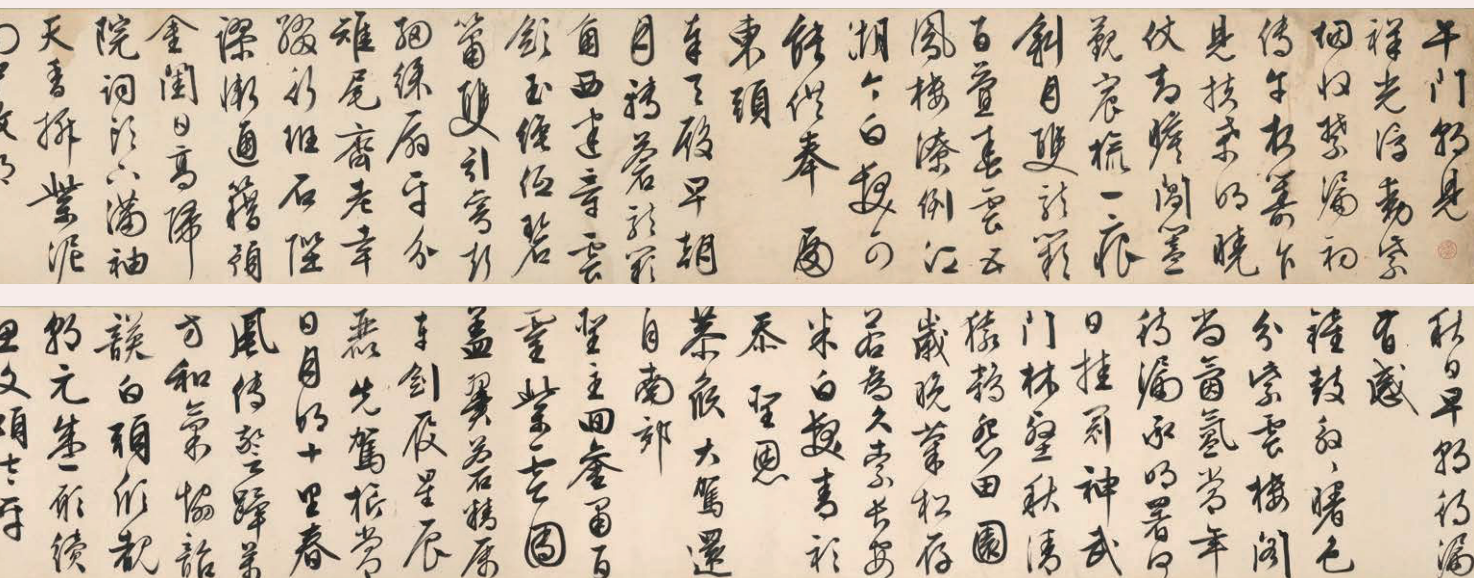 午門朝見
祥光浮動紫
烟收禁漏初
傳午夜籌乍
見扶桑明曉
仗却瞻閶闔
覲宸旒一痕
斜月雙龍闕
百疊春雲五
鳳樓潦倒江
湖今白髮可
能供奉殿
東頭
奉天殿早朝
月轉蒼龍闕
角西建章雲
斂玉繩低碧
簫雙引鸞聲
細綵扇平分
雉尾齊老幸
綴行班石陛
謬慚通籍預
金閨日高歸
院詞頭下滿袖
天香拆紫泥
秋日早朝待漏
有感
鐘鼓殷殷曙色
分紫雲樓閣
尚氤氳常年
待漏承明署何
日挂冠神武
門林壑秋清
猿鶴怨田園
歲晚菊松存
若為久索長安
米白髮青衫
忝聖恩
恭候大駕還
自南郊
聖主回鑾肅百
靈紫雲團
蓋翼蒼精屬
車劍履星辰
麗先駕旂常
日月明十里春
風傳警蹕萬
方和氣協韶
頀白頭欣覩
朝元盛願續
思文頌太平